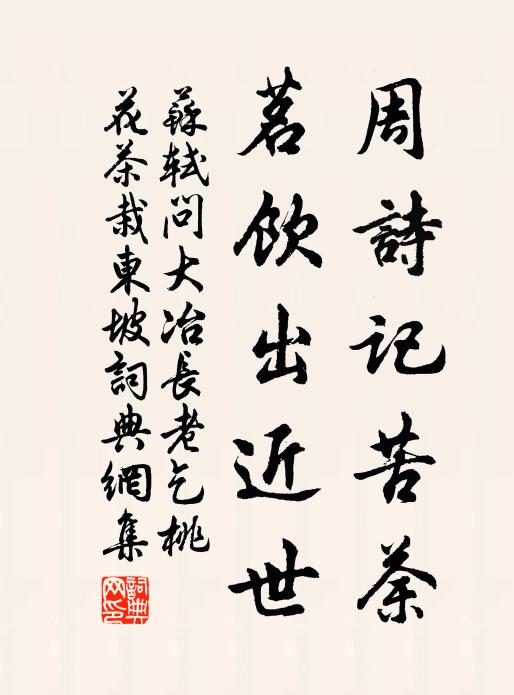 周詩記苦荼
茗飲出近世
蘇軾問大冶長老乞桃
花茶栽東坡詞典網集
詞典網印